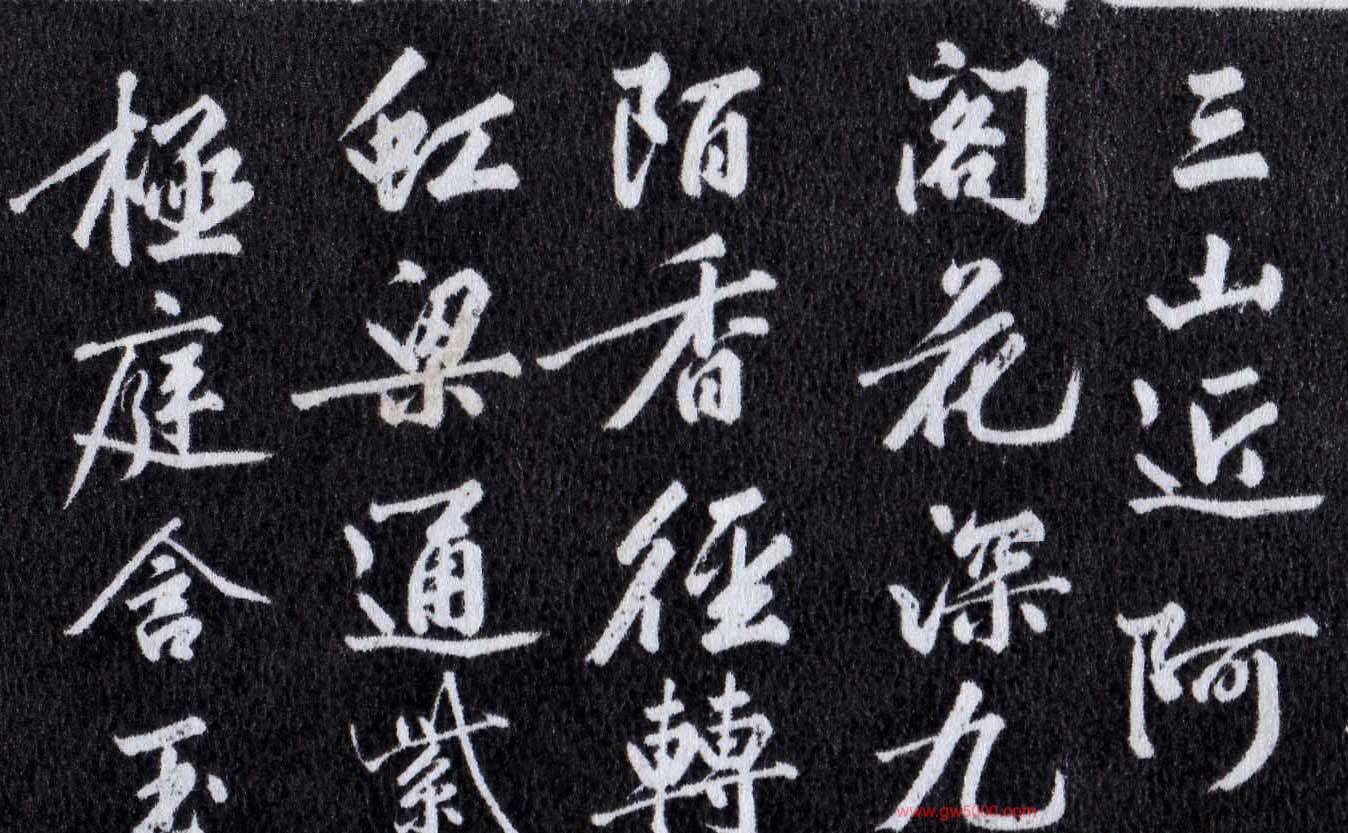 三山近阿
閣花深九
陌香徑轉
虹梁通紫
極庭含玉
www.gw5000.com